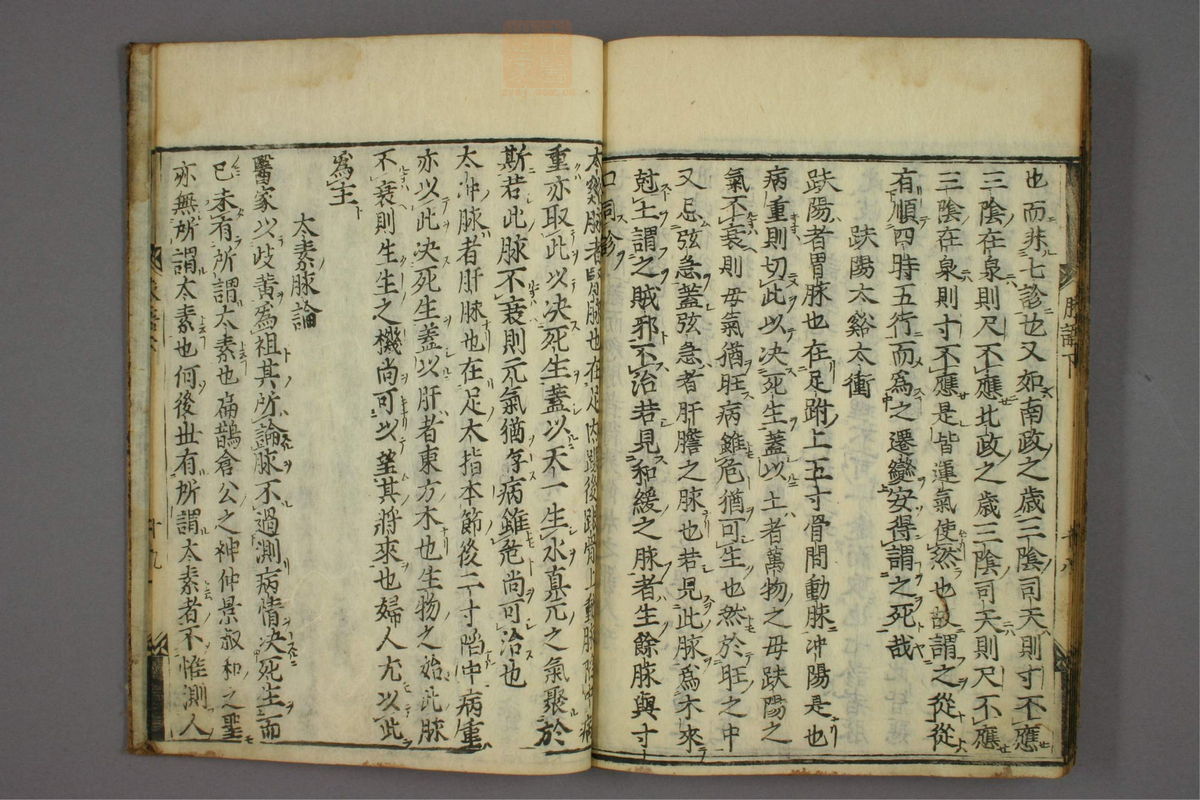 也而非七診也又如南政之歳三陰司天則寸不應
三陰在泉則尺不應北政之歳三陰司天則尺不應
三陰在泉則寸不應是皆運氣使然也故謂之從從
有順四時五行而爲之遷變安得謂之死哉
趺陽太谿太衝
趺陽者胃脉也在足跗上五寸骨間動脉冲陽是也
病重則切此以决死生蓋以土者萬物之母趺陽之
氣不衰則母氣猶旺病雖危猶可生也然於旺之中
又忌弦急蓋弦急者肝膽之脉也若見此脉爲木來
尅土謂之賊邪不治若見和緩之脉者生餘脉與寸
口同診
脉語下
十八
太谿脉者腎脉也在足内踝後跟骨上動脉陷中病
重亦取此以决死生蓋以天一生水真元之氣聚於
斯若此脉不衰則元氣猶存病雖危尚可治也
太冲脉者肝脉也在足太指本節後二寸陷中病重
亦以此决死生蓋以肝者東方木也生物之始此脉
不衰則生生之機尚可以望其將來也婦人尤以此
爲主
太素脉論
醫家以歧黄爲祖其所論脉不過測病情决死生而
已未有所謂太素也扁鵲倉公之神仲景叔和之聖
亦無所謂太素也何後世有所謂太素者不惟測人
十九